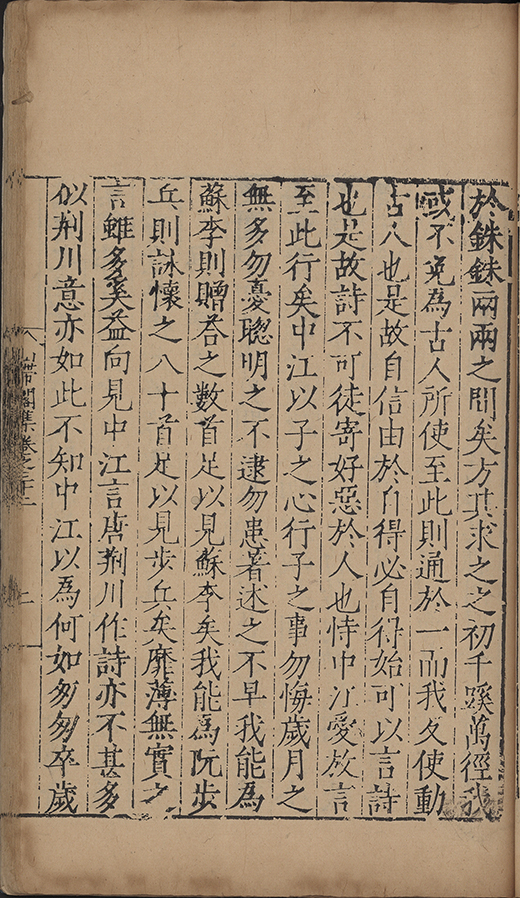 於銖銖兩兩之間矣方其求之之初千蹊萬徑我
或不免為古人所使至此則通於一而我反使動
古人也是故自信由於自得必自得始可以言詩
也是故詩不可徒寄好惡於人也恃中江愛故言
至此行矣中江以子之心行子之事勿悔歲月之
無多勿憂聰明之不逮勿患著述之不早我能為
蘇李則贈荅之數首足以見蘇李矣我能為阮步
兵則詠懷之八十首足以見步兵矣靡薄無實之
言雖多奚益向見中江言唐荆川作詩亦不甚多
似荆川意亦如此不知中江以為何如匆匆卒歲
集卷之十二